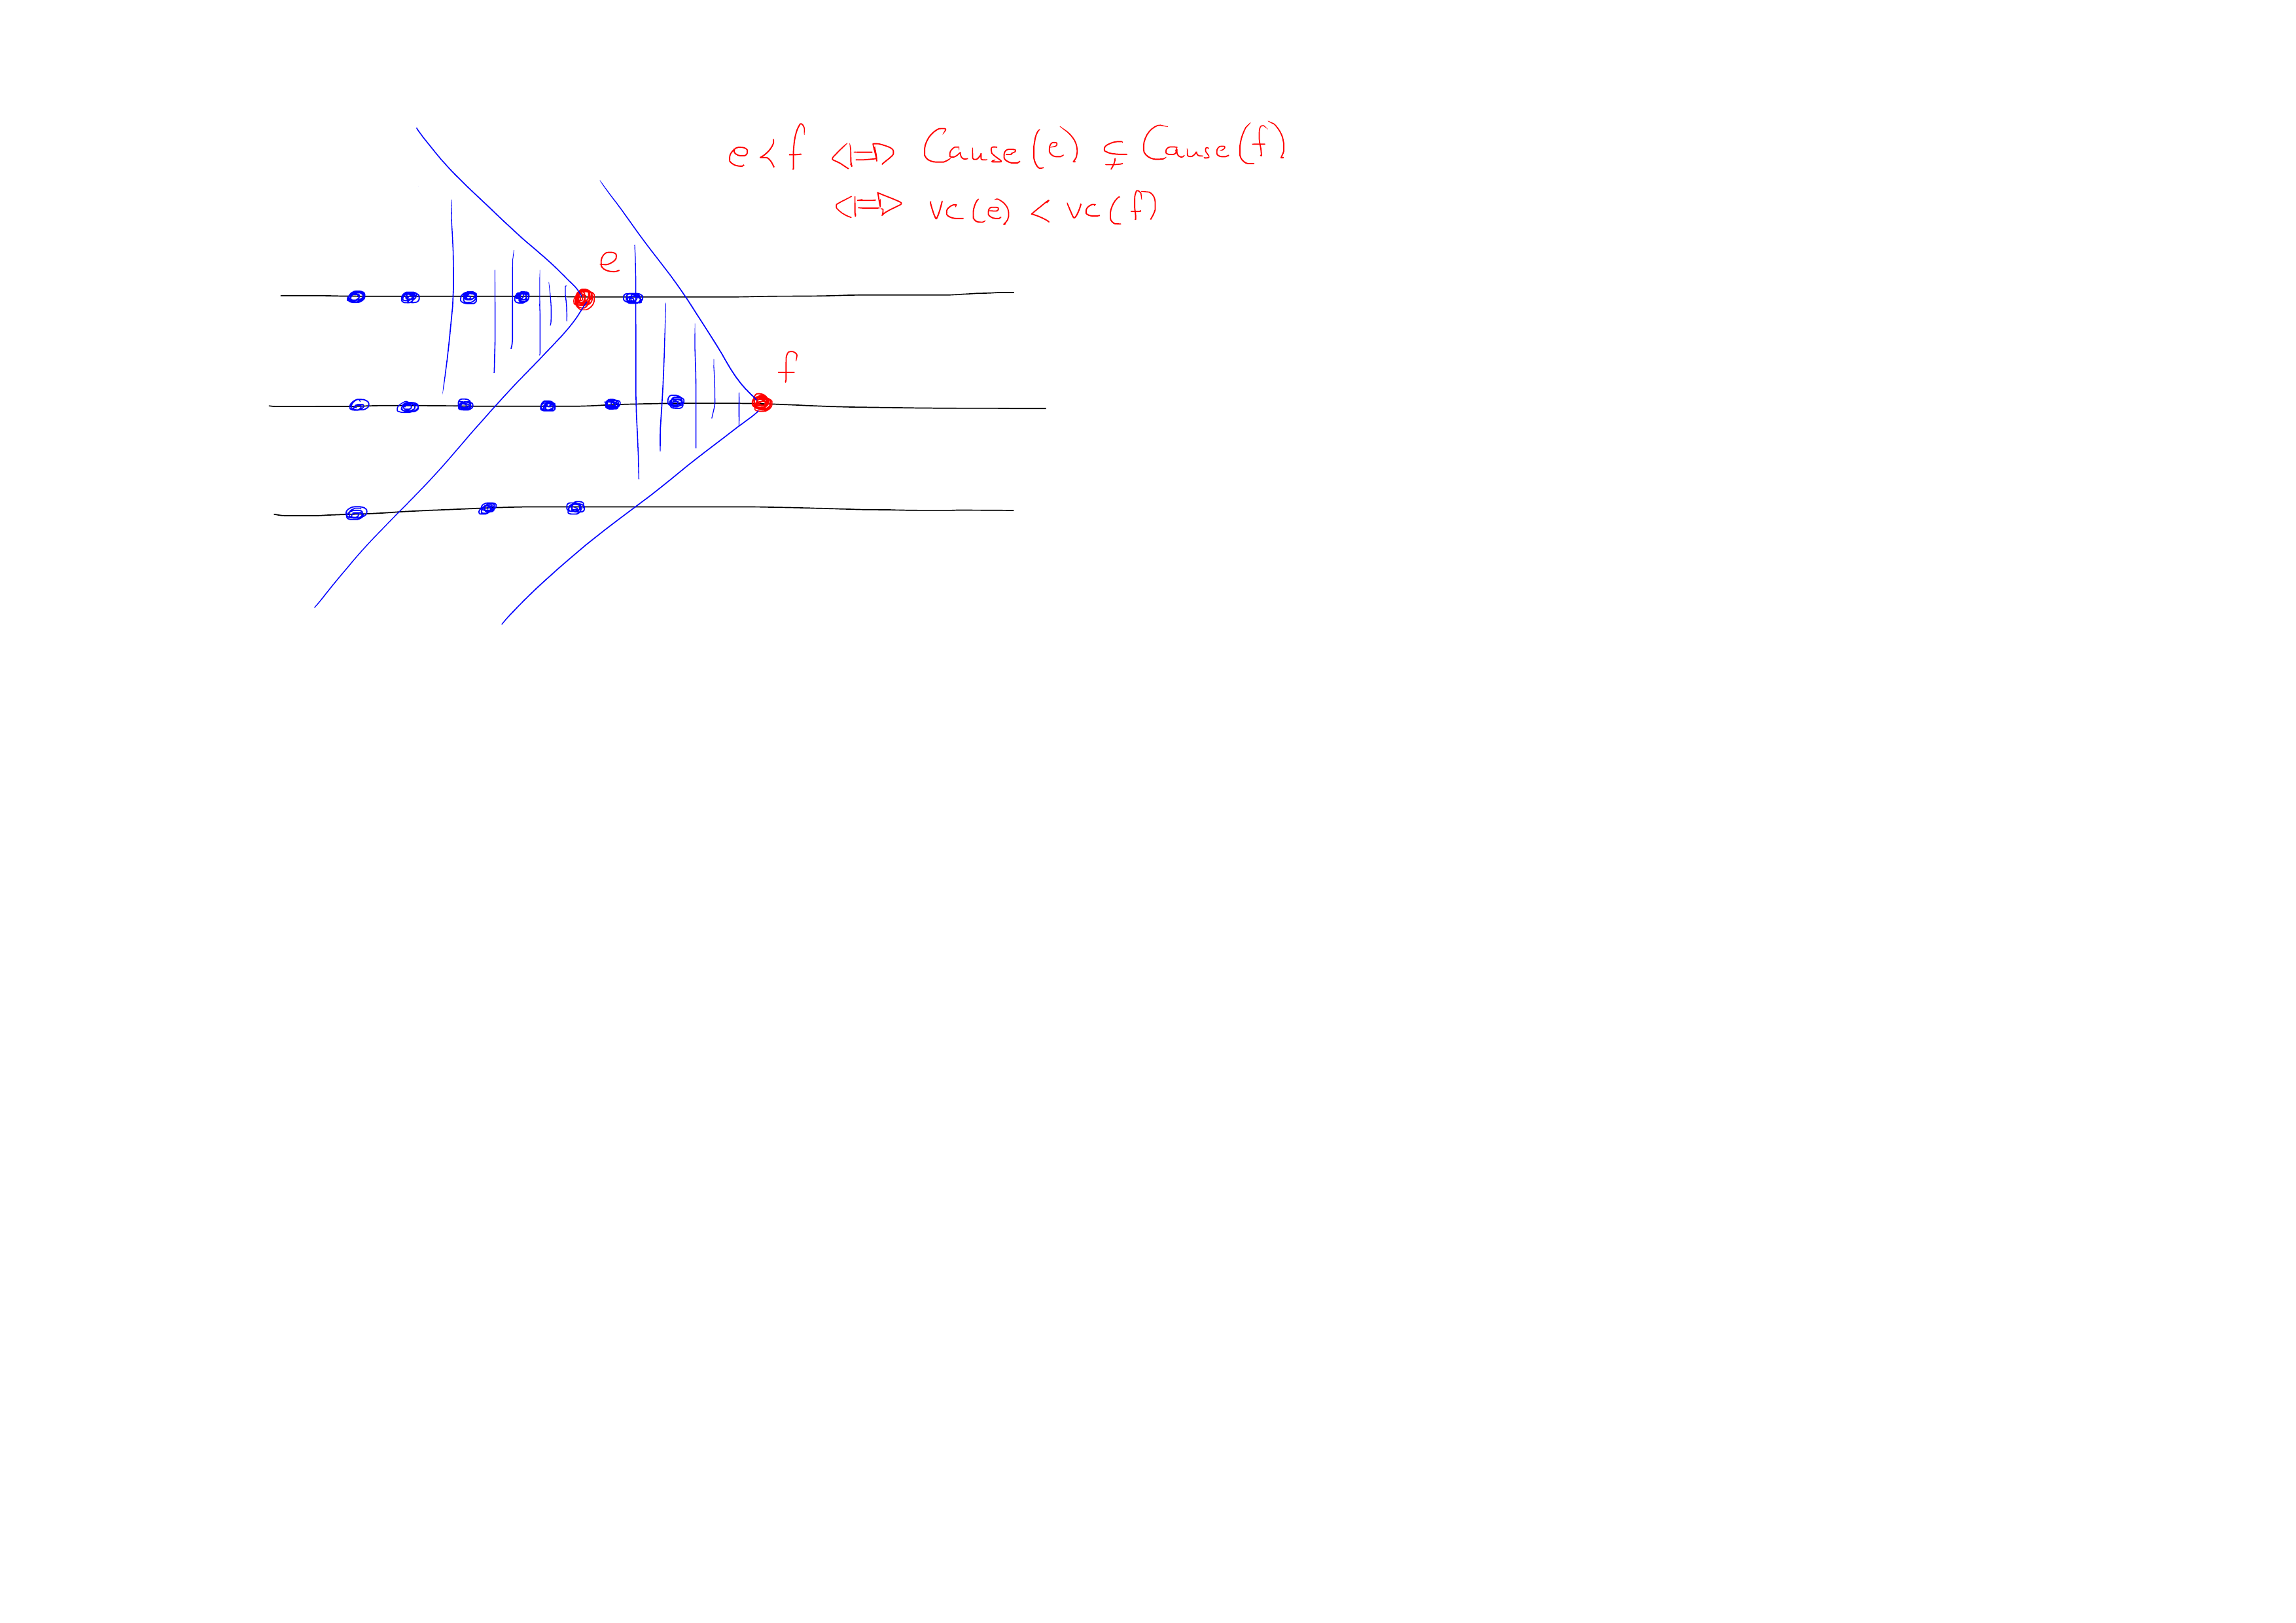 e ≺ f ⟺ Cause(e) ⊊ Cause(f)
⟺ vc(e) < vc(f)
e
f